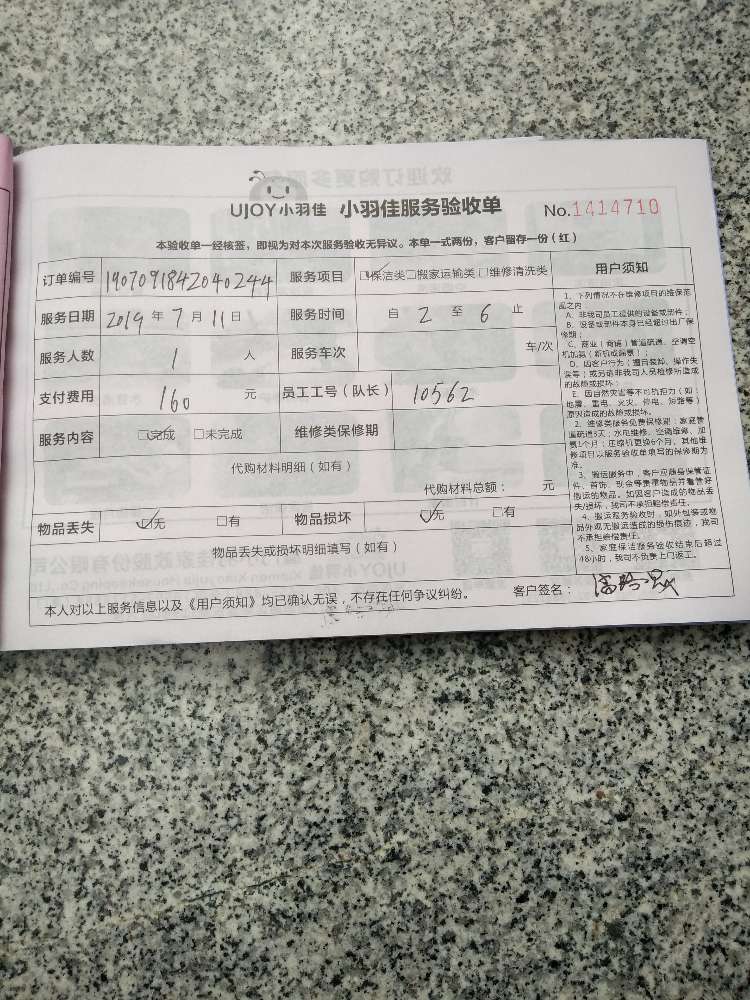 UJOY小羽佳 小羽佳服务验收单 No.1414710
本验收单一经核签，即视为对本次服务验收无异议。本单一式两份，客户留存一份（红）
订单编号 1907091842040244 服务项目 ☑保洁类□搬家运输类□维修清洗类
服务日期 2019 年 7 月 11 日 服务时间 自 2 至 6 止
服务人数 1 人 服务车次 车/次
支付费用 160 元 员工工号（队长） 10562
服务内容 ☑完成 □未完成 维修类保修期
代购材料明细（如有）
代购材料总额： 元
物品丢失 ☑无 □有 物品损坏 ☑无 □有
物品丢失或损坏明细填写（如有）
本人对以上服务信息以及《用户须知》均已确认无误，不存在任何争议纠纷。 客户签名：
用户须知
1、下列情况不在维修项目的维保范
围之内
A、非我司员工提供的设备或部件；
B、设备或部件本身已经超过出厂保
修期；
C、商业（商铺）管道疏通、空调空
机加氨（新机或漏氨）；
D、因客户行为（擅自装卸、操作失
误等）或另请非我司人员维修所造成
的故障或损坏；
E、因自然灾害等不可抗拒力（如：
地震、雷电、火灾、停电、短路等）
原因造成的故障或损坏。
2、维修类服务免费保修期：家庭管
道疏通3天；水电维修、空调维修、加
氨1个月；压缩机更换6个月，其他维
修项目以服务验收单填写的保修期为
准。
3、搬运服务中，客户应随身保管证
件、首饰、现金等贵重物品并看管好
搬运的物品。如因客户造成的物品丢
失/损坏，我司不承担赔偿责任。
4、搬运服务验收时，如外包装或物
品外观无搬运造成的损伤痕迹，我司
不承担赔偿责任。
5、家庭保洁服务验收结束后超过
48小时，我司不负责上门返工。